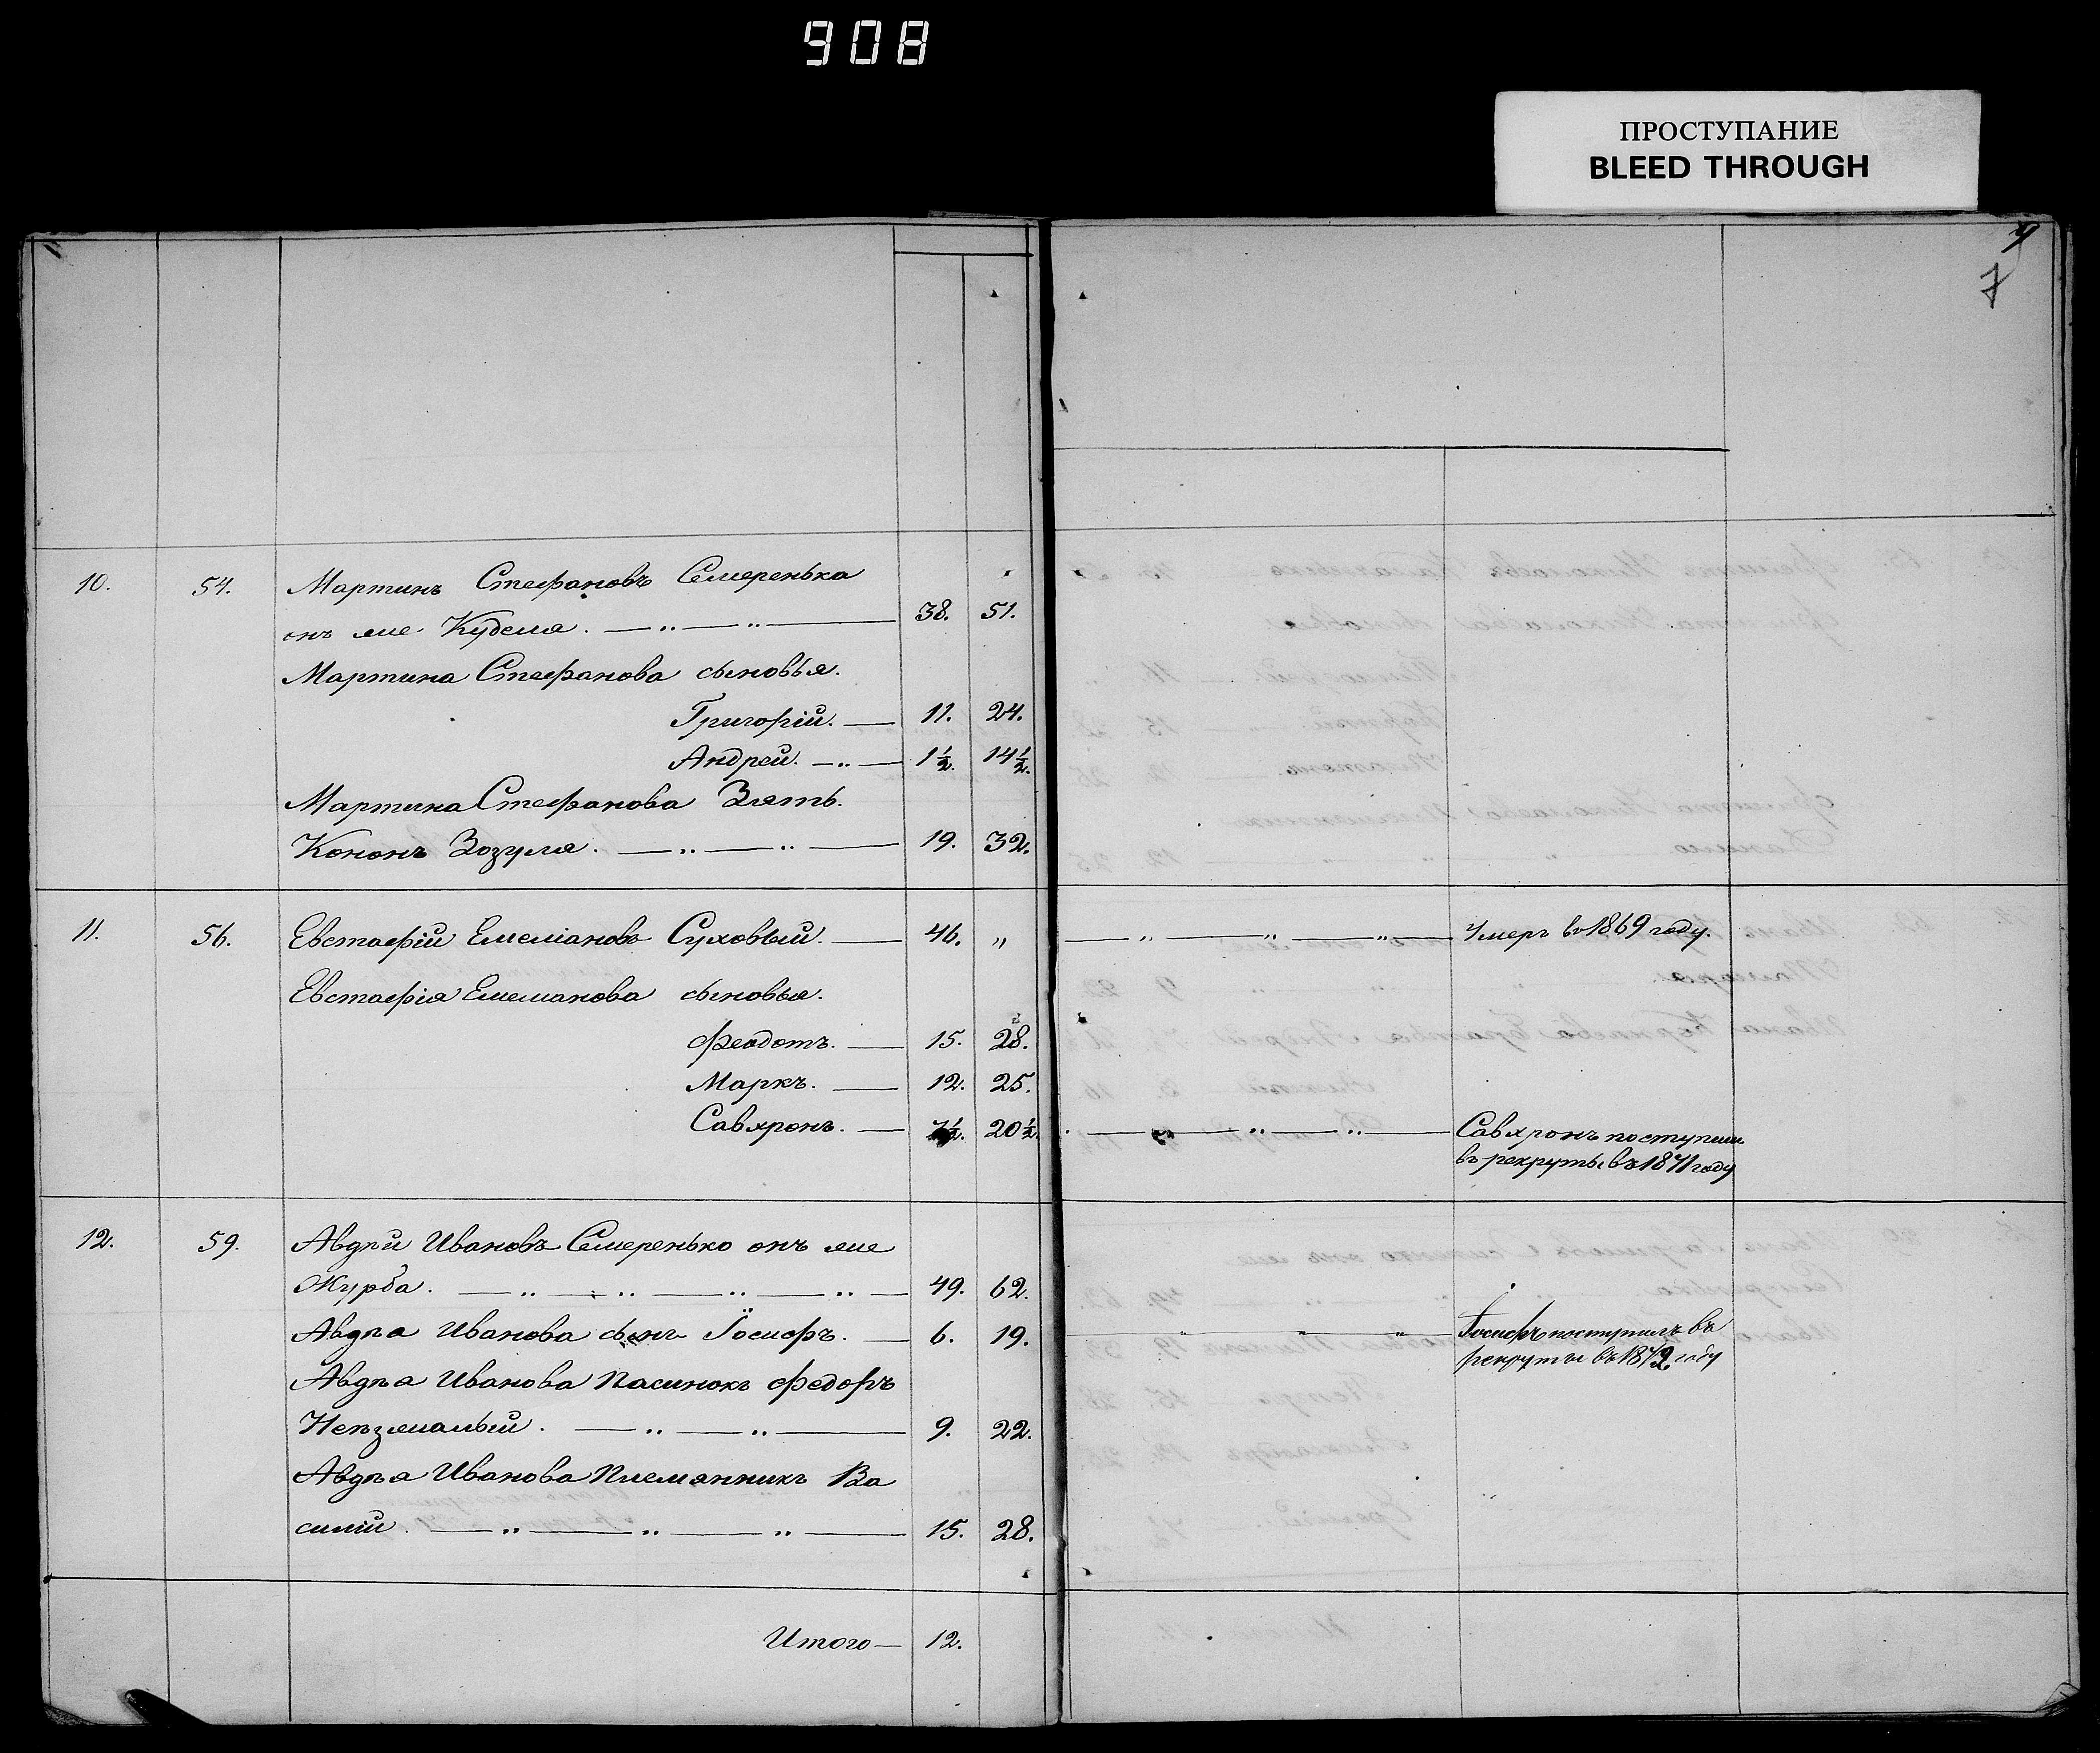 908
ПРОСТУПАНИЕ
BLEED THROUGH
7
10. 54. Мартинъ Стефановъ Семеренька
онъ же Куделя. 38. 51.
Мартина Стефанова сыновья.
Григорій. 11. 24.
Андрей. 1½. 14½.
Мартина Стефанова Зять.
Кононъ Зозуля. 19. 32.
11. 56. Евстафій Емеліановъ Суховый. 46. „ Умеръ въ 1869 году.
Евстафія Емельанова сыновья.
Феодотъ. 15. 28.
Маркъ. 12. 25.
Савхронъ. 7½. 20½. Савхронъ поступилъ
въ рекруты въ 1871 году
12. 59. Авдѣй Ивановъ Семеренько онъ же
Журба. 49. 62.
Авдѣа Иванова сынъ Іосифъ. 6. 19. Іосифъ поступилъ въ
рекруты въ 1872 году
Авдѣа Иванова Пасинокъ Федоръ
Непзжалый. 9. 22.
Авдѣа Иванова Племянникъ Ва
силій. 15. 28.
Итого — 12.